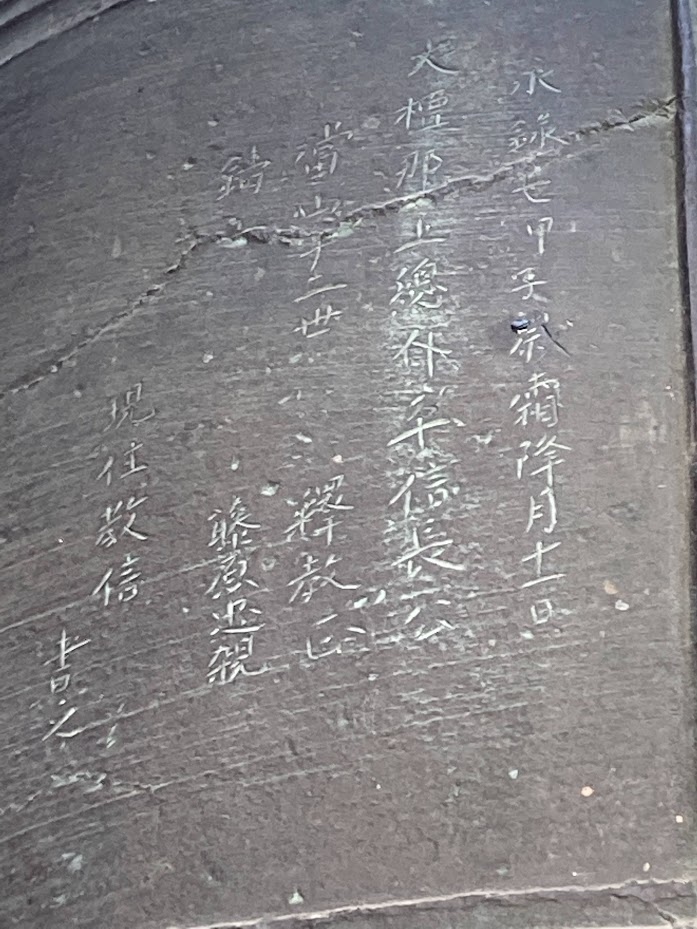 永祿七甲子歲霜降月十一日
大檀那上總介平信長公
當山十二世 釋教正
鑄 藤原忠親
現住教信
書之